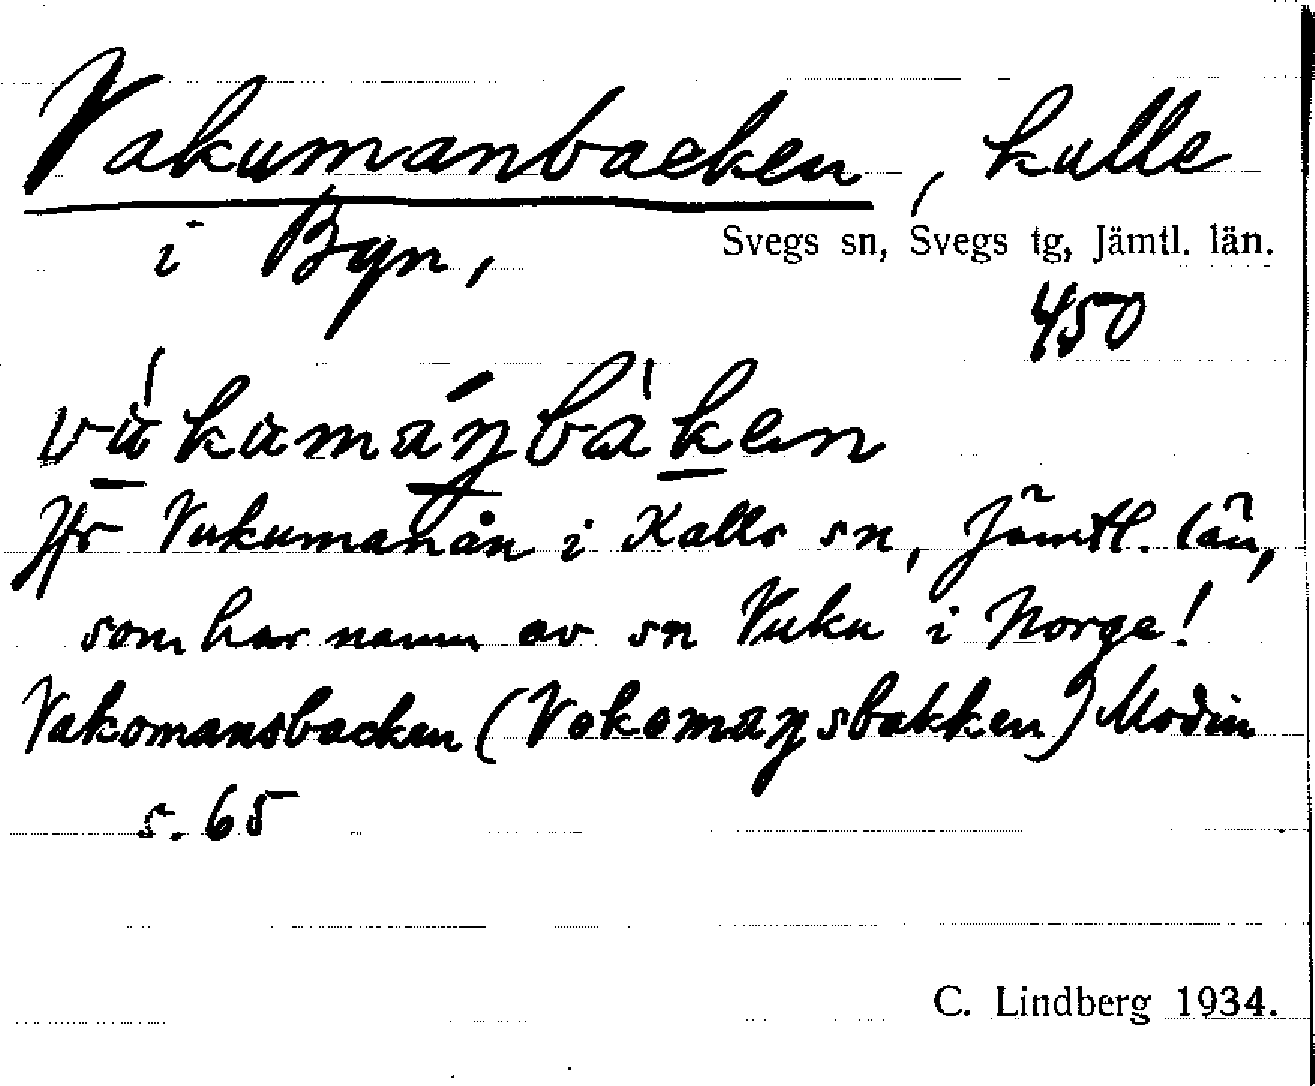 Vakumanbacken, kulle
i Byn,
Svegs sn, Svegs tg, Jämtl. län.
450
vákumáŋbàken
Jfr Vukumanån i Kalls sn, Jämtl. län,
som har namn av sn Vuku i Norge!
Vakomansbacken (Vokomaŋsbakken) Modin
s. 65
C. Lindberg 1934.